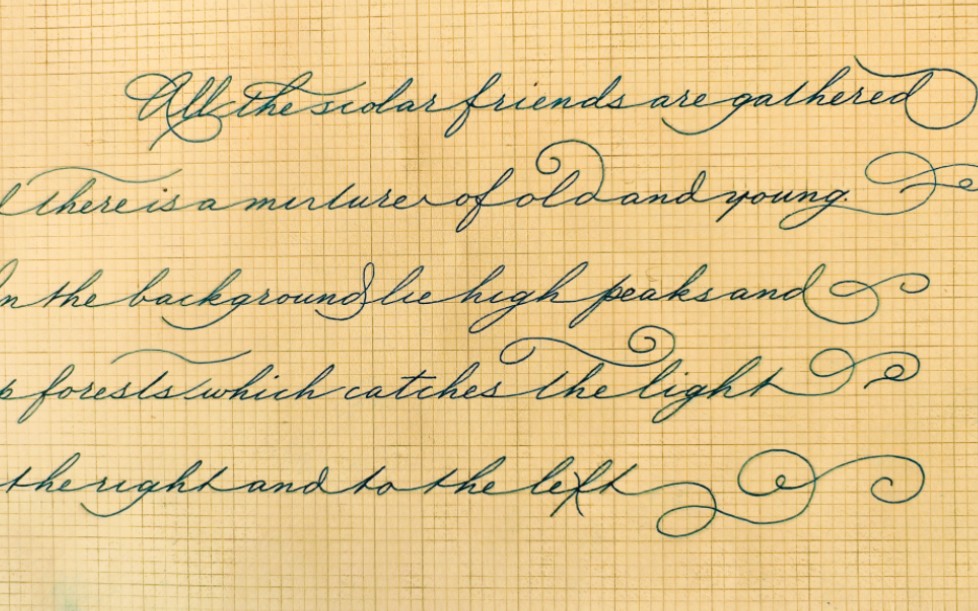 All the scolar friends are gathered
there is a mixture of old and young.
In the background lie high peaks and
forests which catches the light
the right and to the left